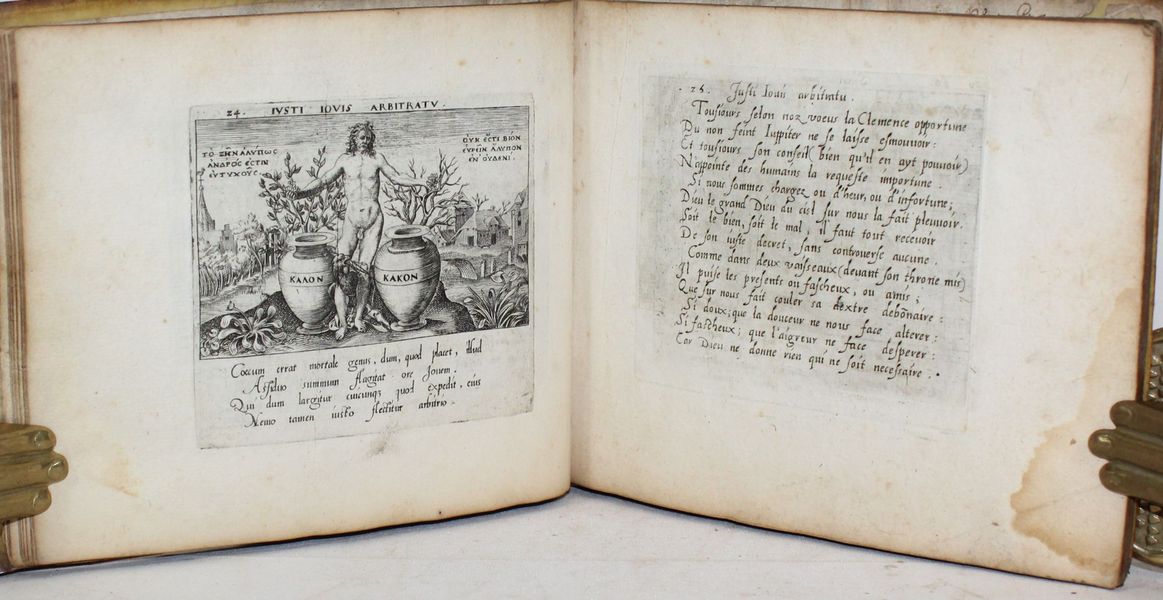 24. IVSTI IOVIS ARBITRATV.
ΤΟ ΖΗΝ ΑΛΥΠΩΣ
ΑΝΔΡΟΣ ΕΣΤΙΝ
ΕΥΤΥΧΟΥΣ.
ΟΥΚ ΕΣΤΙ ΒΙΟΝ
ΕΥΡΕΙΝ ΑΛΥΠΟΝ
ΕΝ ΟΥΔΕΝΙ.
ΚΑΛΟΝ
ΚΑΚΟΝ
Cœcum errat mortale genus, dum, quod placet, illud
Assiduo summum flagitat ore Jouem.
Qui dum largitur cuicunqꝫ quod expedit, eius
Nemo tamen iusto flectitur arbitrio.
Justi Iouis arbitratu.
Tousiours selon noz voeus la Clemence opportune
Du non feint Iuppiter ne se laisse esmouuoir:
Et tousiours son conseil (bien qu'il en ayt pouuoir)
N'apointe des humains la requeste importune.
Si nous sommes chargez ou d'heur, ou d'infortune;
Dieu le grand Dieu du ciel sur nous la fait pleuuoir.
Soit le bien, soit le mal, il faut tout receuoir
De son iuste decret, sans controuerse aucune.
Comme dans deux vaisseaux (deuant son throne mis)
Il puise les presents ou fascheux, ou amis;
Que sur nous fait couler sa dextre debônaire:
Si doux; que la douceur ne nous face alterer:
Si fascheux; que l'aigreur ne face desperer:
Car Dieu ne donne rien qui ne soit necessaire.